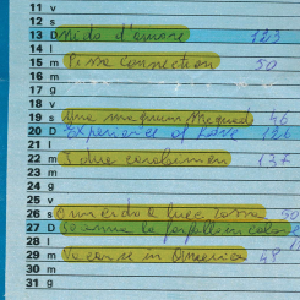 11 v
12 s
13 D Nido d'amore 123
14 l
15 m Pizza Connection 50
16 m
17 g
18 v
19 s Una 46
20 D Experience of Love 126
21 l
22 m I due carabinieri 137
23 m
24 g
25 v
26 s a luce rossa 50
27 D la farfalla in calore
28 l
29 m Vacanze in America 48
30 m
31 g